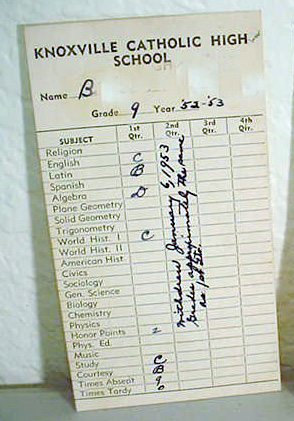 KNOXVILLE CATHOLIC HIGH
SCHOOL
Name B
Grade 9 Year '52-'53
SUBJECT 1st Qtr. 2nd Qtr. 3rd Qtr. 4th Qtr.
Religion
English C
Latin B
Spanish
Algebra D
Plane Geometry
Solid Geometry
Trigonometry
World Hist. I C
World Hist. II
American Hist.
Civics
Sociology
Gen. Science
Biology
Chemistry
Physics
Honor Points 2
Phys. Ed.
Music
Study C
Courtesy B
Times Absent 9
Times Tardy 0
Withdrew January 6, 1953
Grades approximately the same
as 1st Qtr.